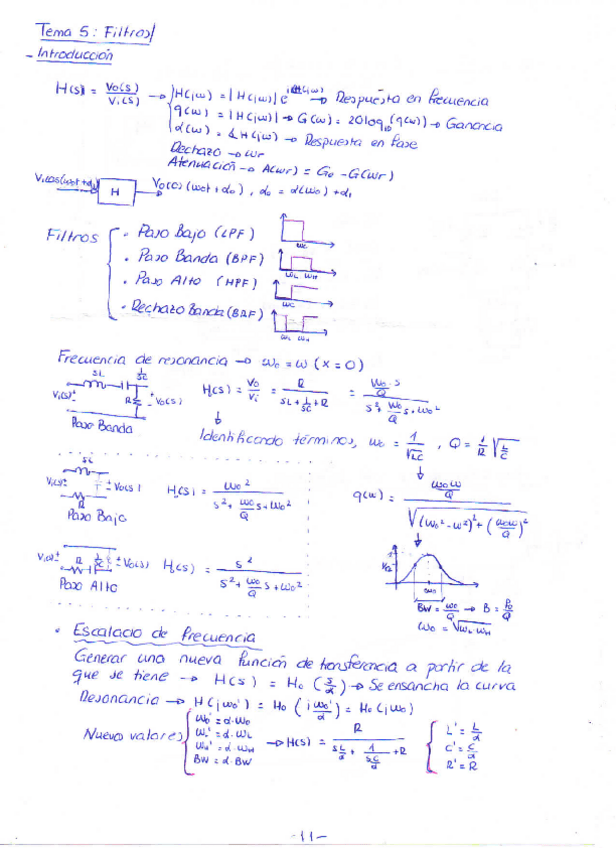 Tema 5: Filtros
- Introducción
H(s) = Vo(s)/Vi(s) → H(jω) = |H(jω)| e → Respuesta en frecuencia
g(ω) = |H(jω)| → G(ω) = 20log₁₀(g(ω)) → Ganancia
α(ω) = ∡H(jω) → Respuesta en fase
Rechazo → ωr
Atenuación → A(ωr) = Go - G(ωr)
H
Vo(cos(ωot+αo), αo = α(ωo) + αi
Filtros
• Paso Bajo (LPF)
ωc
• Paso Banda (BPF)
ωL ωH
• Paso Alto (HPF)
ωc
• Rechazo Banda (BRF)
ωL ωH
Frecuencia de resonancia → ωo = ω (X=0)
sL 1/sC
Vi(s) R Vo(s)
H(s) = Vo/Vi = R/(sL + 1/sC + R) = (ωo/Q · s)/(s² + ωo/Q s + ωo²)
Paso Banda
Identificando términos, ωo = 1/√LC , Q = 1/R √(L/C)
sL
Vi(s) Vo(s)
R
H(s) = ωo²/(s² + ωo/Q s + ωo²)
Paso Bajo
g(ω) = (ωoω/Q)/√((ωo²-ω²)² + (ωoω/Q)²)
Vi(s) R 1/sC Vo(s)
H(s) = s²/(s² + ωo/Q s + ωo²)
Paso Alto
1
ωo
BW = ωo/Q → B = fo/Q
ωo = √ωL·ωH
• Escalacio de Frecuencia
Generar una nueva función de transferencia a partir de la
que se tiene → H(s) = Ho (s/α) → Se ensancha la curva
Resonancia → H(jωo') = Ho (jωo'/α) = Ho(jωo)
Nuevo valores
ωo' = α·ωo
ωL' = α·ωL
ωH' = α·ωH
BW = α·BW
→ H(s) = R/(sL/α + 1/(sC/α) + R)
L' = L/α
C' = C/α
R' = R
-11-